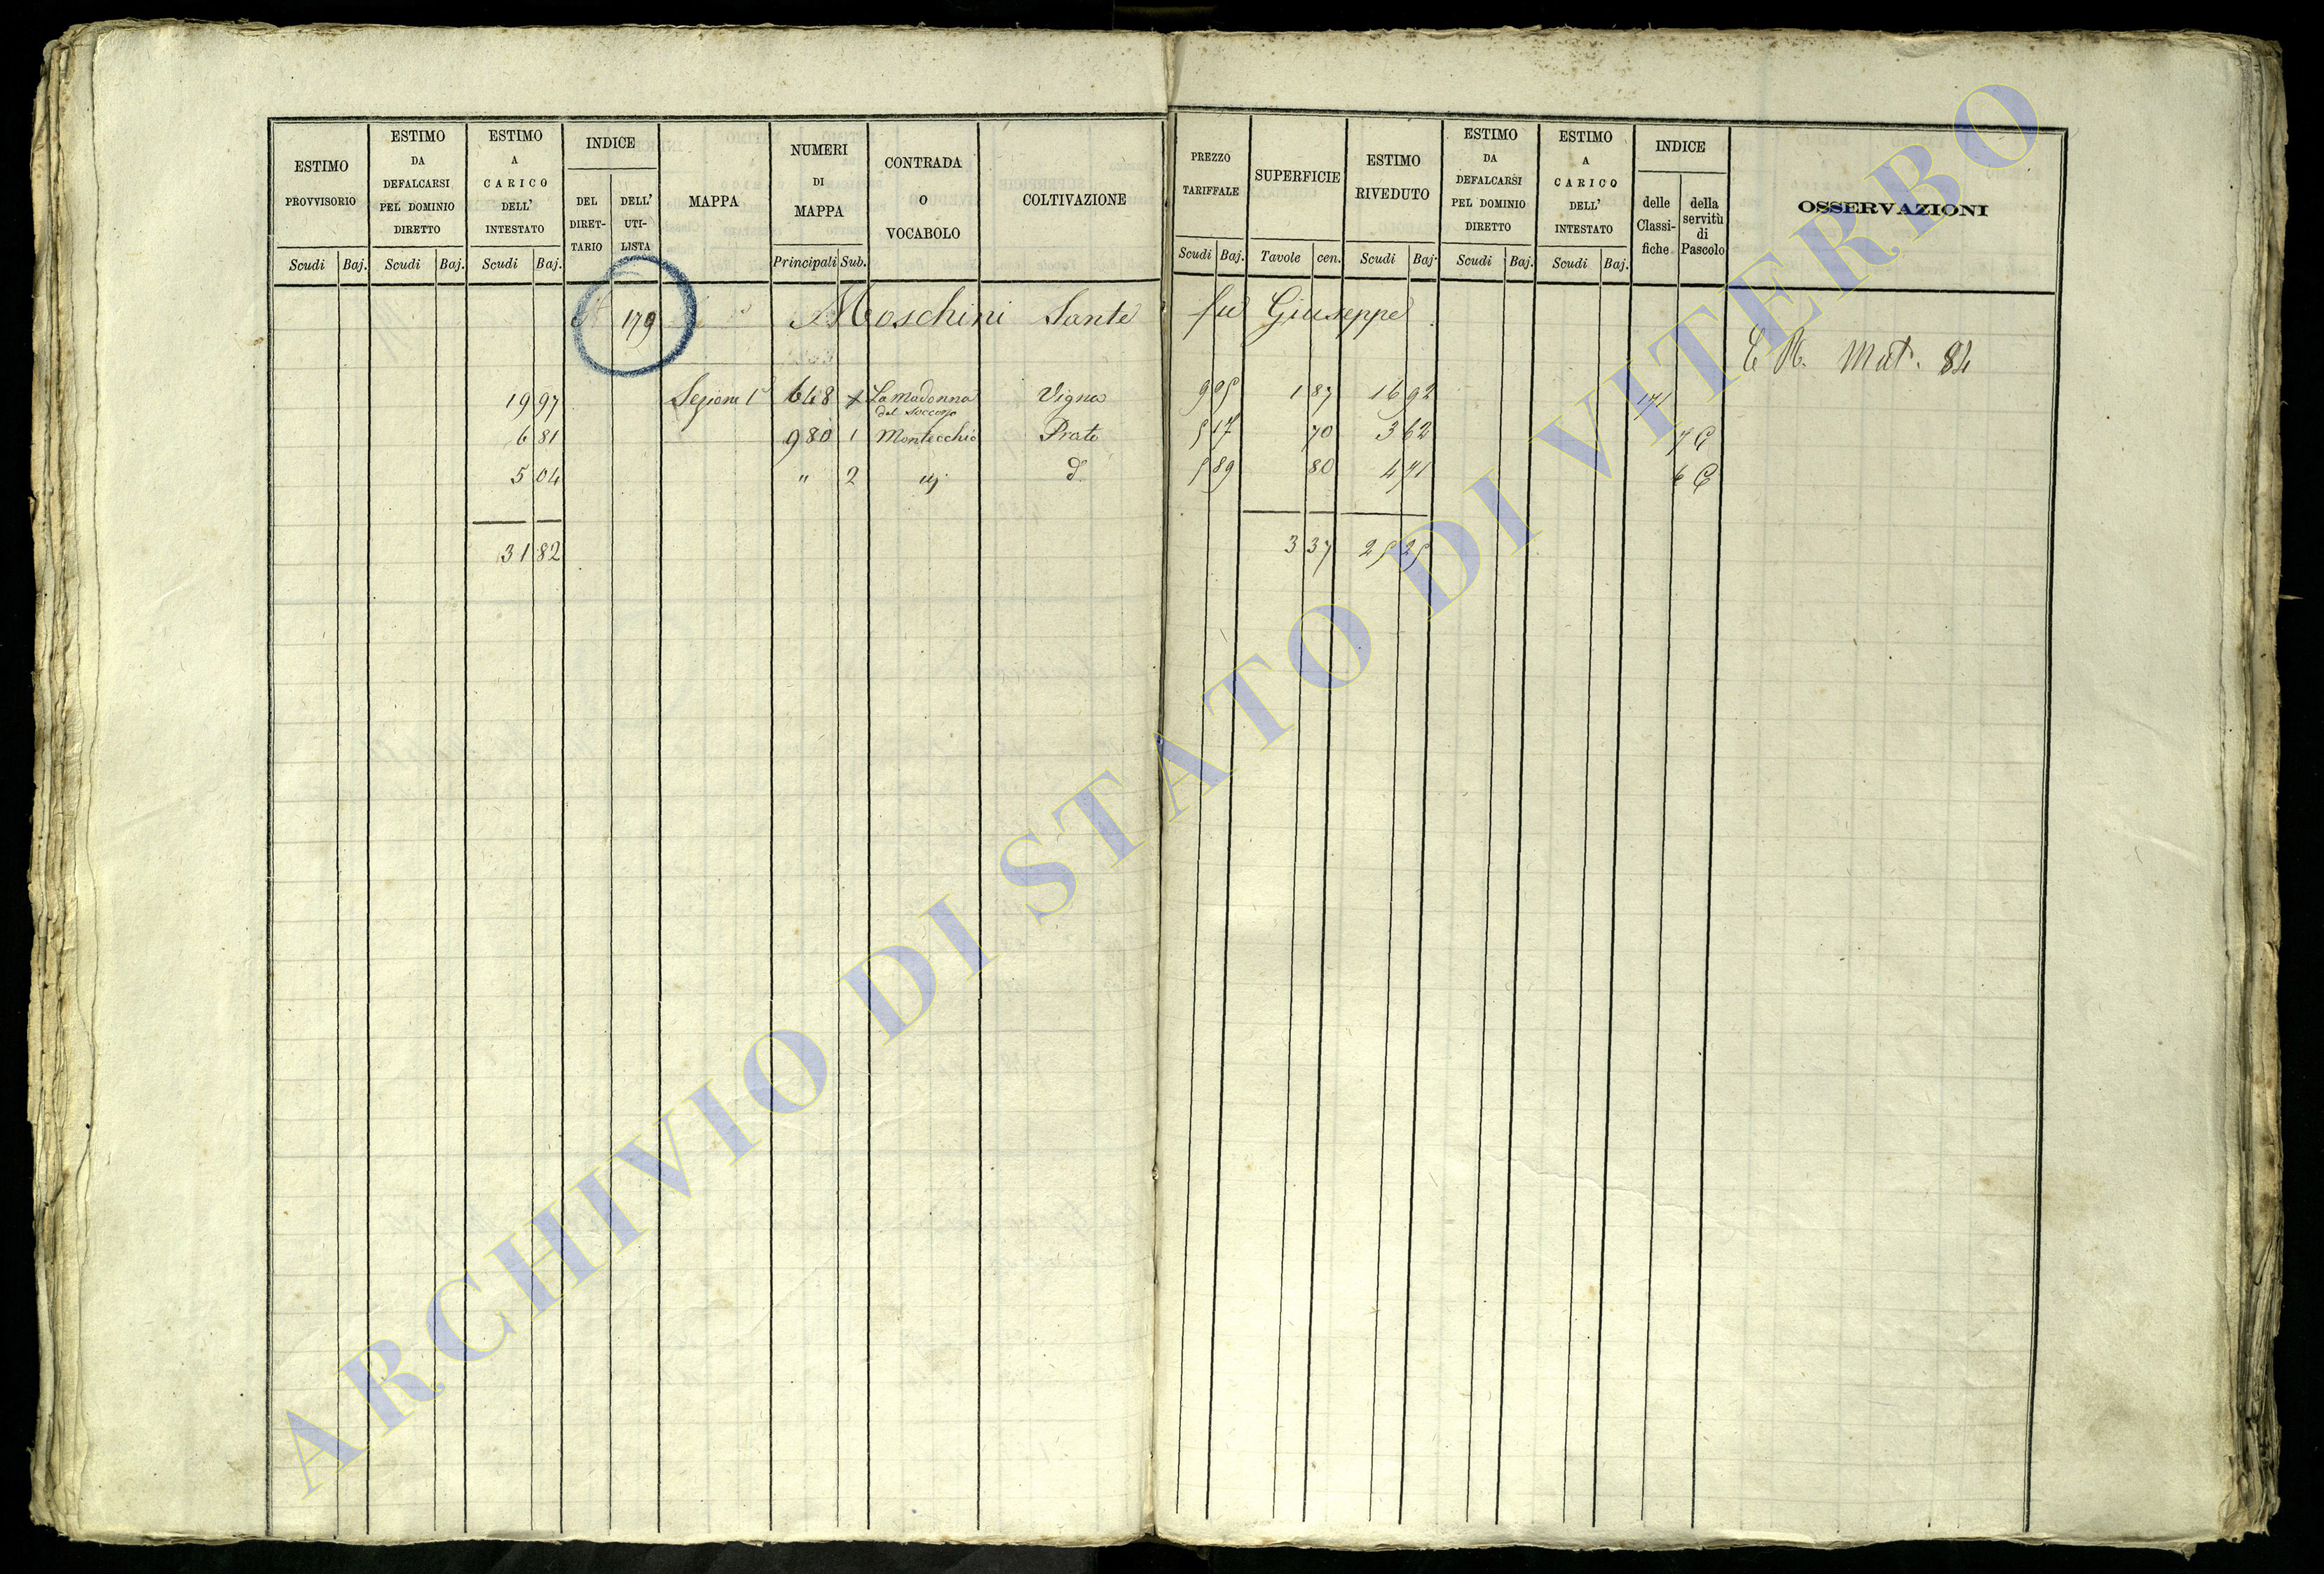 ESTIMO PROVVISORIO Scudi Baj.
ESTIMO DA DEFALCARSI PEL DOMINIO DIRETTO Scudi Baj.
ESTIMO A CARICO DELL' INTESTATO Scudi Baj.
INDICE DEL DIRET-TARIO DELL' UTI-LISTA
MAPPA
NUMERI DI MAPPA Principali Sub.
CONTRADA O VOCABOLO
COLTIVAZIONE
PREZZO TARIFFALE Scudi Baj.
SUPERFICIE Tavole cen.
ESTIMO RIVEDUTO Scudi Baj.
ESTIMO DA DEFALCARSI PEL DOMINIO DIRETTO Scudi Baj.
ESTIMO A CARICO DELL' INTESTATO Scudi Baj.
INDICE delle Classi-fiche della servitù di Pascolo
OSSERVAZIONI
179 Moschini Sante fu Giuseppe
Mat. 84
19 97 Sezione 1ª 648 x La Madonna del Soccorso Vigna 9 05 1 87 16 92 171
6 81 980 1 Montecchio Prato 5 17 70 3 62 7 C
5 04 " 2 d° 5 89 80 4 71 6 C
31 82 3 37 25 25
ARCHIVIO DI STATO DI VITERBO